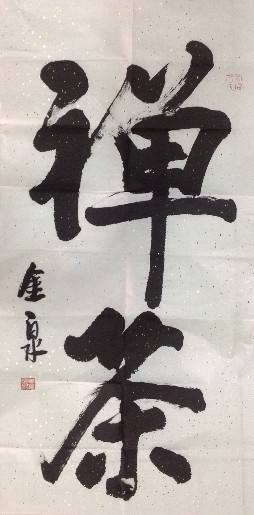 禅茶
金泉